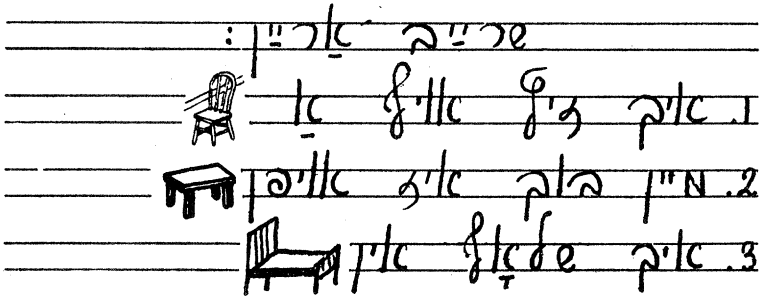 שרײַב אַרײַן:
1. איך זיץ אויף אַ
2. מײן בוך איז אויפן
3. איך שלאָף אין